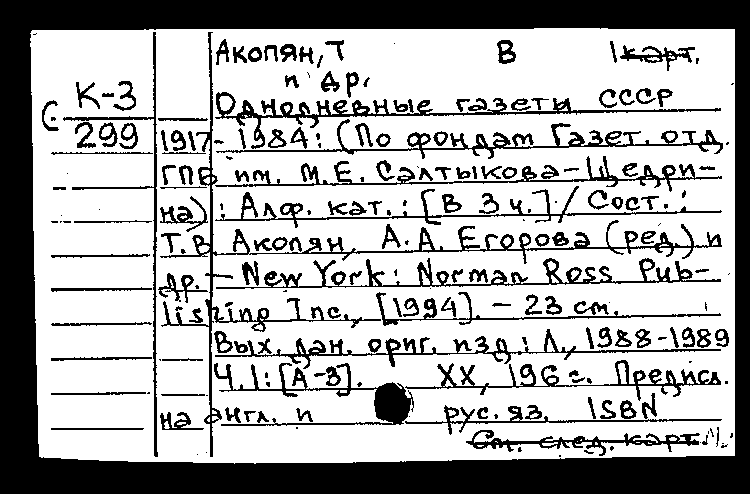 Акопян, Т В 1 карт.
и др.
С К-3
Однодневные газеты СССР
299 1917-1984: (По фондам Газет. отд.
ГПБ им. М.Е. Салтыкова-Щедри-
на) : Алф. кат. : [В 3 ч.] / Сост. :
Т.В. Акопян, А.А. Егорова (ред.) и
др. — New York: Norman Ross Pub-
lishing Inc., [1994]. - 23 см.
Вых. дан. ориг. изд.: Л., 1988-1989
Ч.1: [А-З]. XX, 196 с. Предисл.
на англ. и рус. яз. ISBN
См. след. карт.